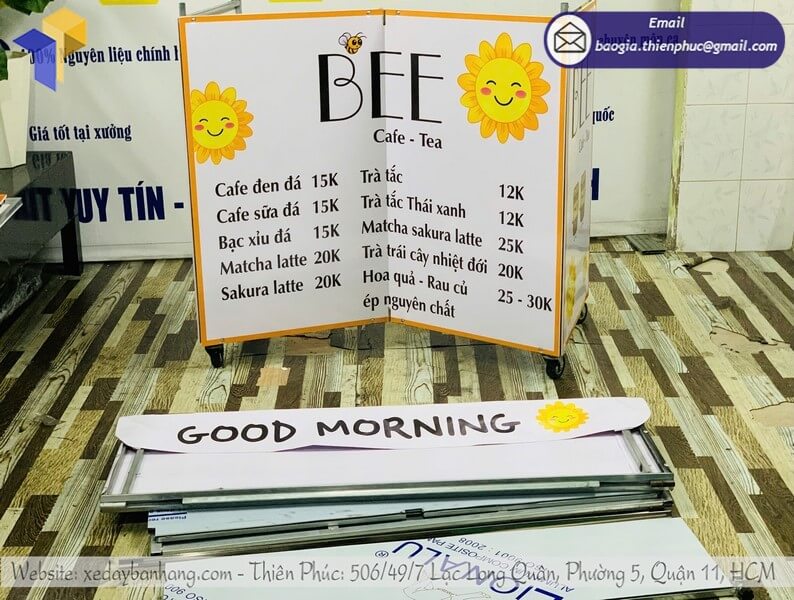 Email
baogia.thienphuc@gmail.com
100% Nguyên liệu chính h
Giá tốt tại xưởng
UY TÍN -
quốc
BEE
Cafe - Tea
Cafe đen đá 15K
Cafe sữa đá 15K
Bạc xỉu đá 15K
Matcha latte 20K
Sakura latte 20K
Trà tắc 12K
Trà tắc Thái xanh 12K
Matcha sakura latte 25K
Trà trái cây nhiệt đới 20K
Hoa quả - Rau củ
ép nguyên chất 25 - 30K
GOOD MORNING
COMPOSITE PA
9001 : 2008
ISO 900
Website: xedaybanhang.com - Thiên Phúc: 506/49/7 Lạc Long Quân, Phường 5, Quận 11, HCM